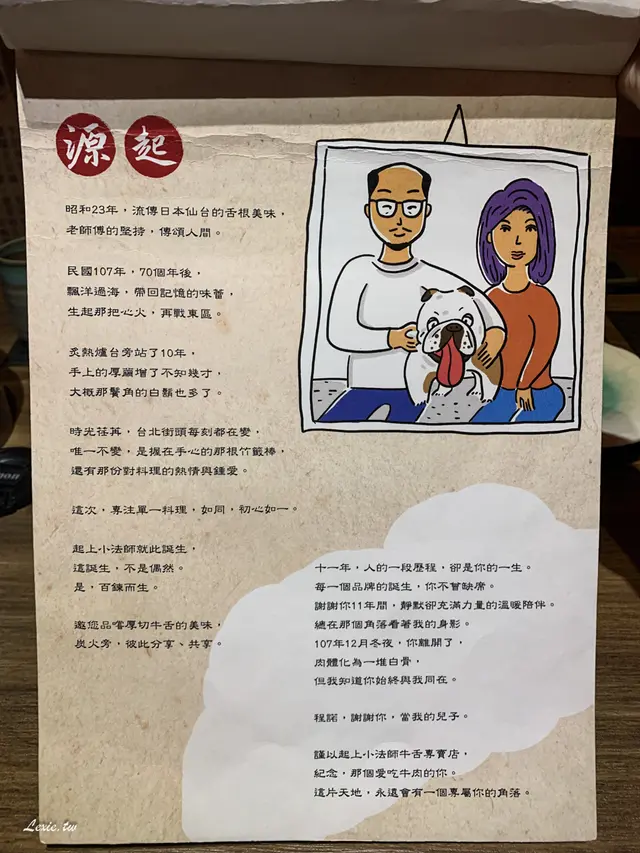 源起
昭和23年，流傳日本仙台的舌根美味，
老師傅的堅持，傳頌人間。
民國107年，70個年後，
飄洋過海，帶回記憶的味蕾，
生起那把心火，再戰東區。
炙熱爐台旁站了10年，
手上的厚繭增了不知幾寸，
大概那鬢角的白鬚也多了。
時光荏苒，台北街頭每刻都在變，
唯一不變，是握在手心的那根竹籤棒，
還有那份對料理的熱情與鍾愛。
這次，專注單一料理，如同，初心如一。
起上小法師就此誕生，
這誕生，不是偶然。
是，百鍊而生。
邀您品嚐厚切牛舌的美味，
炭火旁，彼此分享、共享。
十一年，人的一段歷程，卻是你的一生。
每一個品牌的誕生，你不曾缺席。
謝謝你11年間，靜默卻充滿力量的溫暖陪伴。
總在那個角落看著我的身影。
107年12月冬夜，你離開了，
肉體化為一堆白骨，
但我知道你始終與我同在。
程諾，謝謝你，當我的兒子。
謹以起上小法師牛舌專賣店，
紀念，那個愛吃牛肉的你。
這片天地，永遠會有一個專屬你的角落。
Lexie.tw